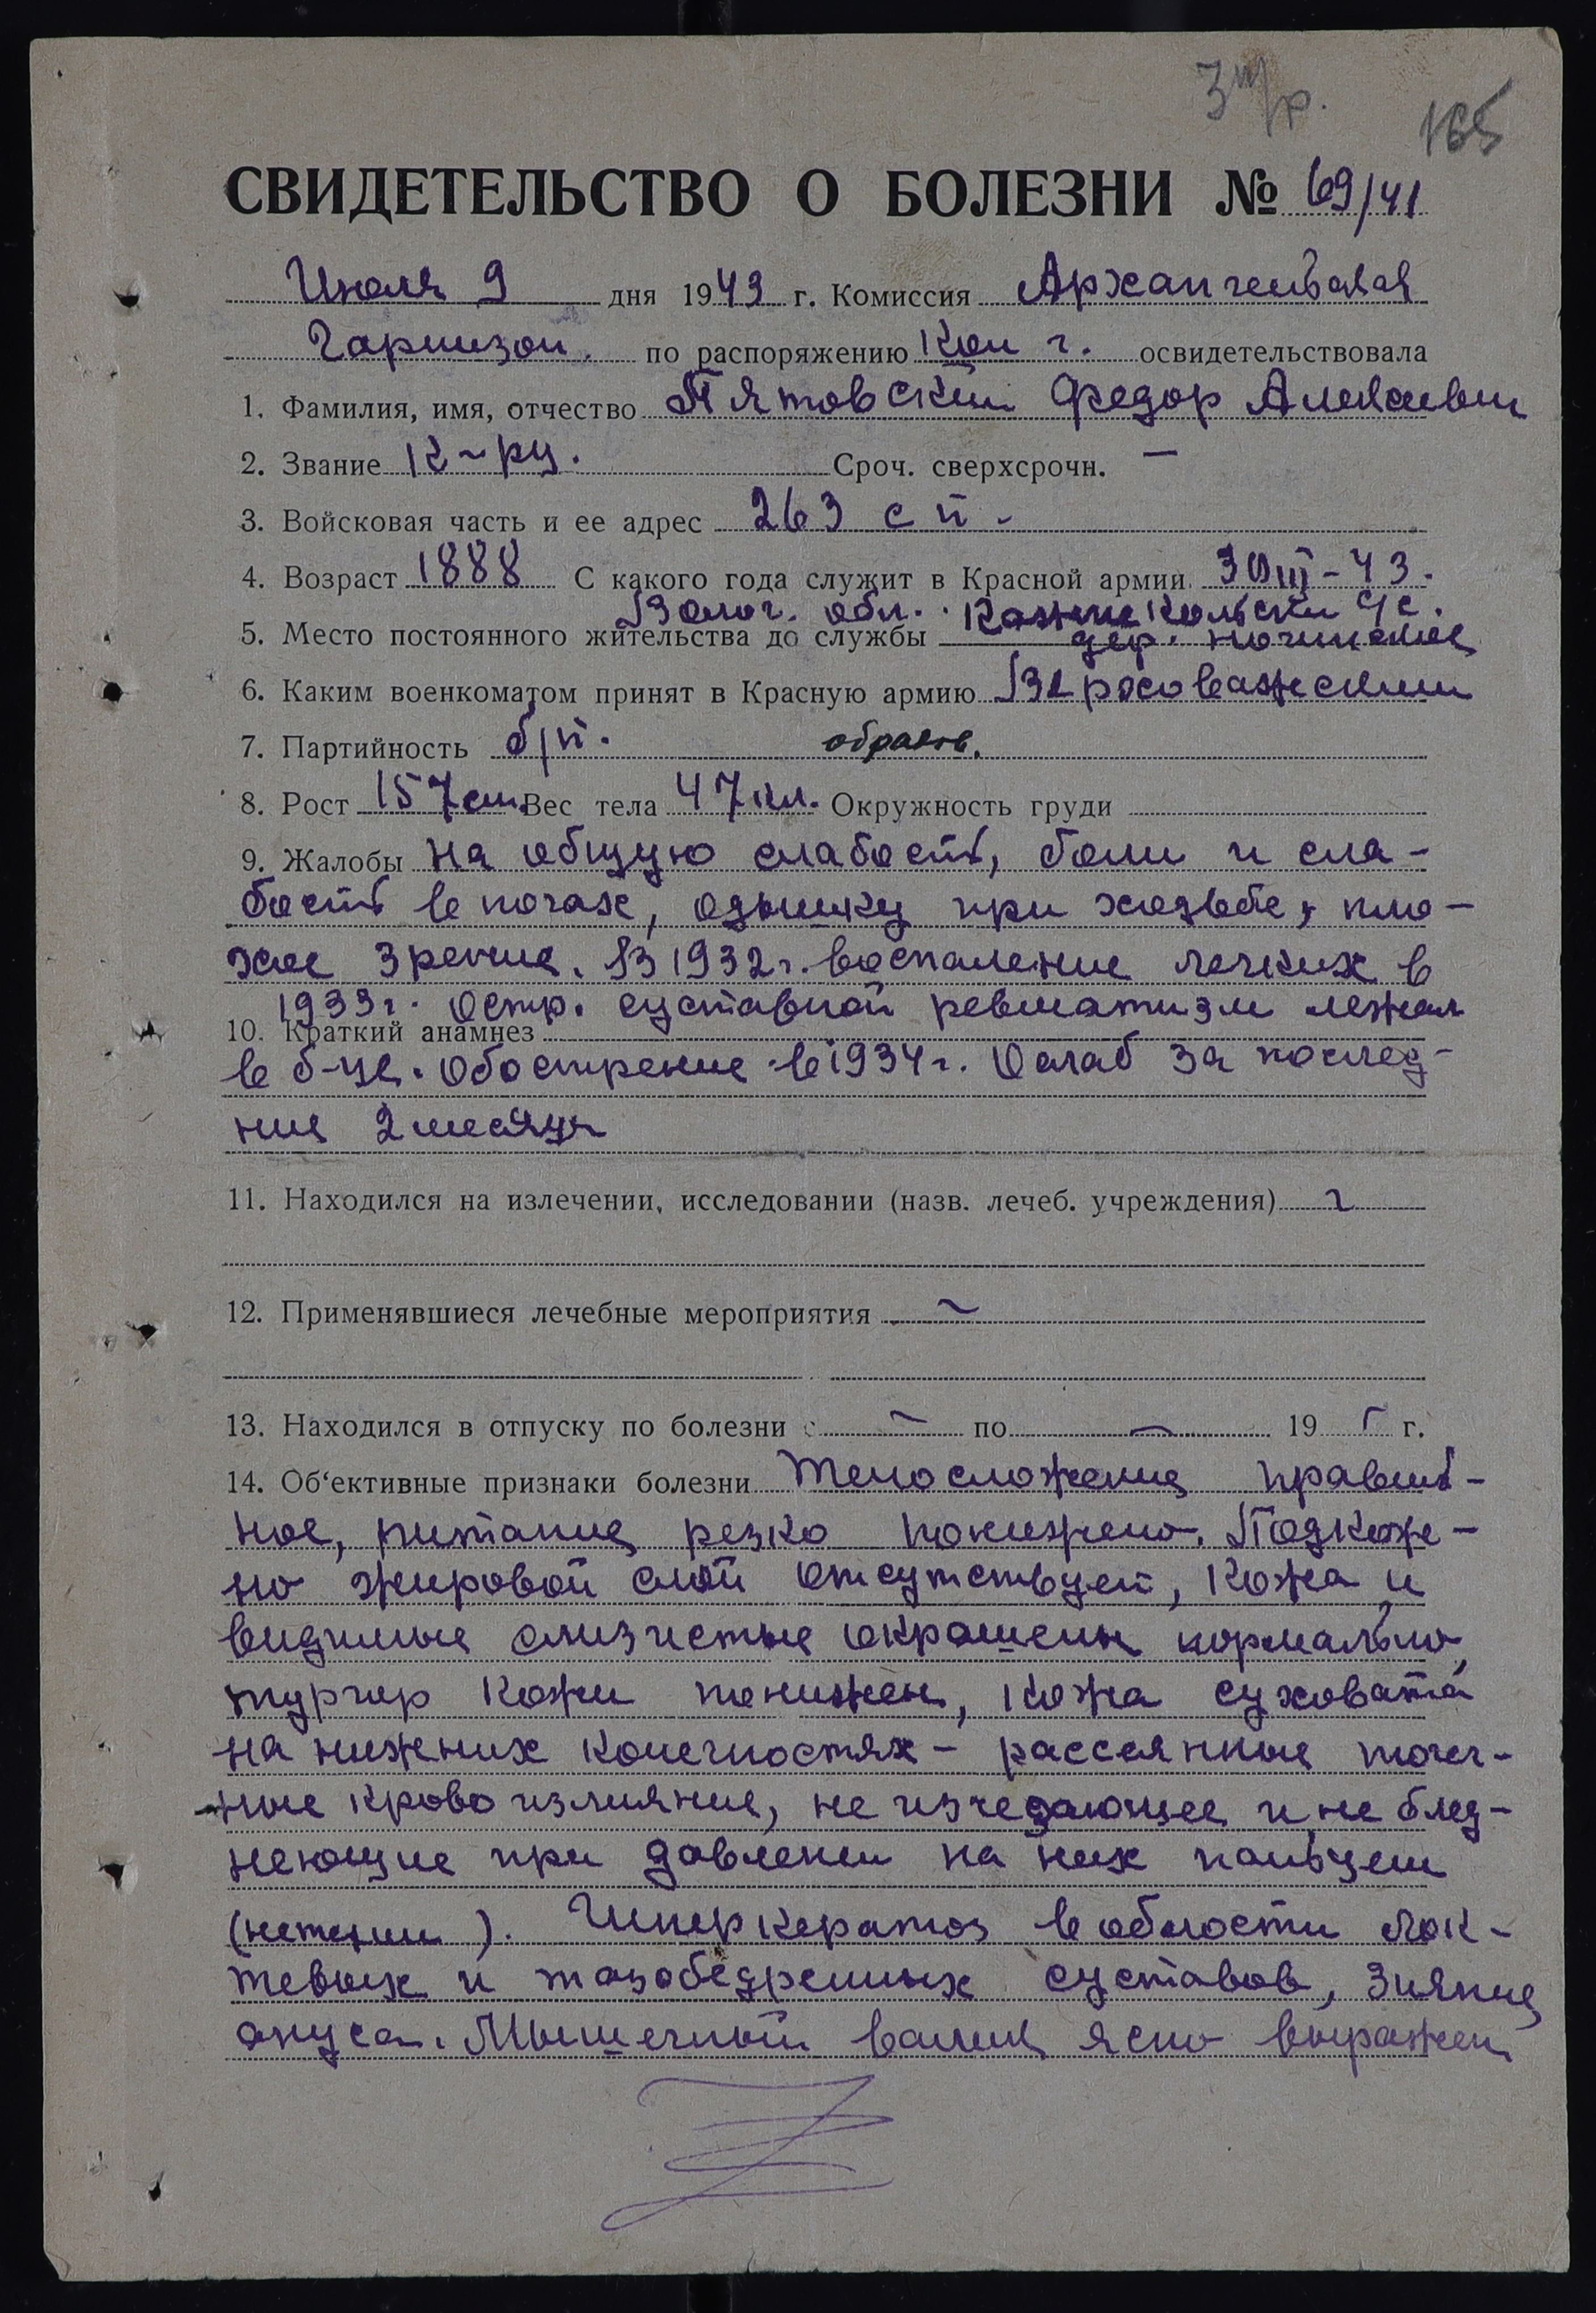 165
СВИДЕТЕЛЬСТВО О БОЛЕЗНИ № 69/41
Июля 9 дня 1943 г. Комиссия Архангельская
Гарнизон. по распоряжению Ком г. освидетельствовала
1. Фамилия, имя, отчество Пятовский Федор Алексеевич
2. Звание К-рц. Сроч. сверхсрочн. —
3. Войсковая часть и ее адрес 263 сп -
4. Возраст 1888 С какого года служит в Красной армии 30 III - 43.
Волог. обл.
5. Место постоянного жительства до службы дер.
6. Каким военкоматом принят в Красную армию
7. Партийность б/п. образов.
8. Рост 157 см. Вес тела 47 кл. Окружность груди
9. Жалобы на общую слабость, боли и сла-
бость в ногах, одышку при ходьбе, пло-
хое зрение. В 1932 г. воспаление легких в
1933 г. остр. суставной ревматизм лежал
10. Краткий анамнез
в б-це. Обострение в 1934 г. Ослаб за послед-
ние 2 месяца
11. Находился на излечении, исследовании (назв. лечеб. учреждения)
12. Применявшиеся лечебные мероприятия ~
13. Находился в отпуску по болезни с — по — 19 г.
14. Об‘ективные признаки болезни Телосложение правиль-
ное, питание резко понижено. Подкож-
но жировой слой отсутствует, кожа и
видимые слизистые окрашены нормально,
тургор кожи понижен, кожа суховата
на нижних конечностях - рассеянные точеч-
ные кровоизлияние, не изчезающее и не блед-
неющие при давлении на них пальцем
(петехии). Гиперкератоз в области лок-
тевых и тазобедренных суставов, зияние
ануса. Мышечный валик ясно выражен